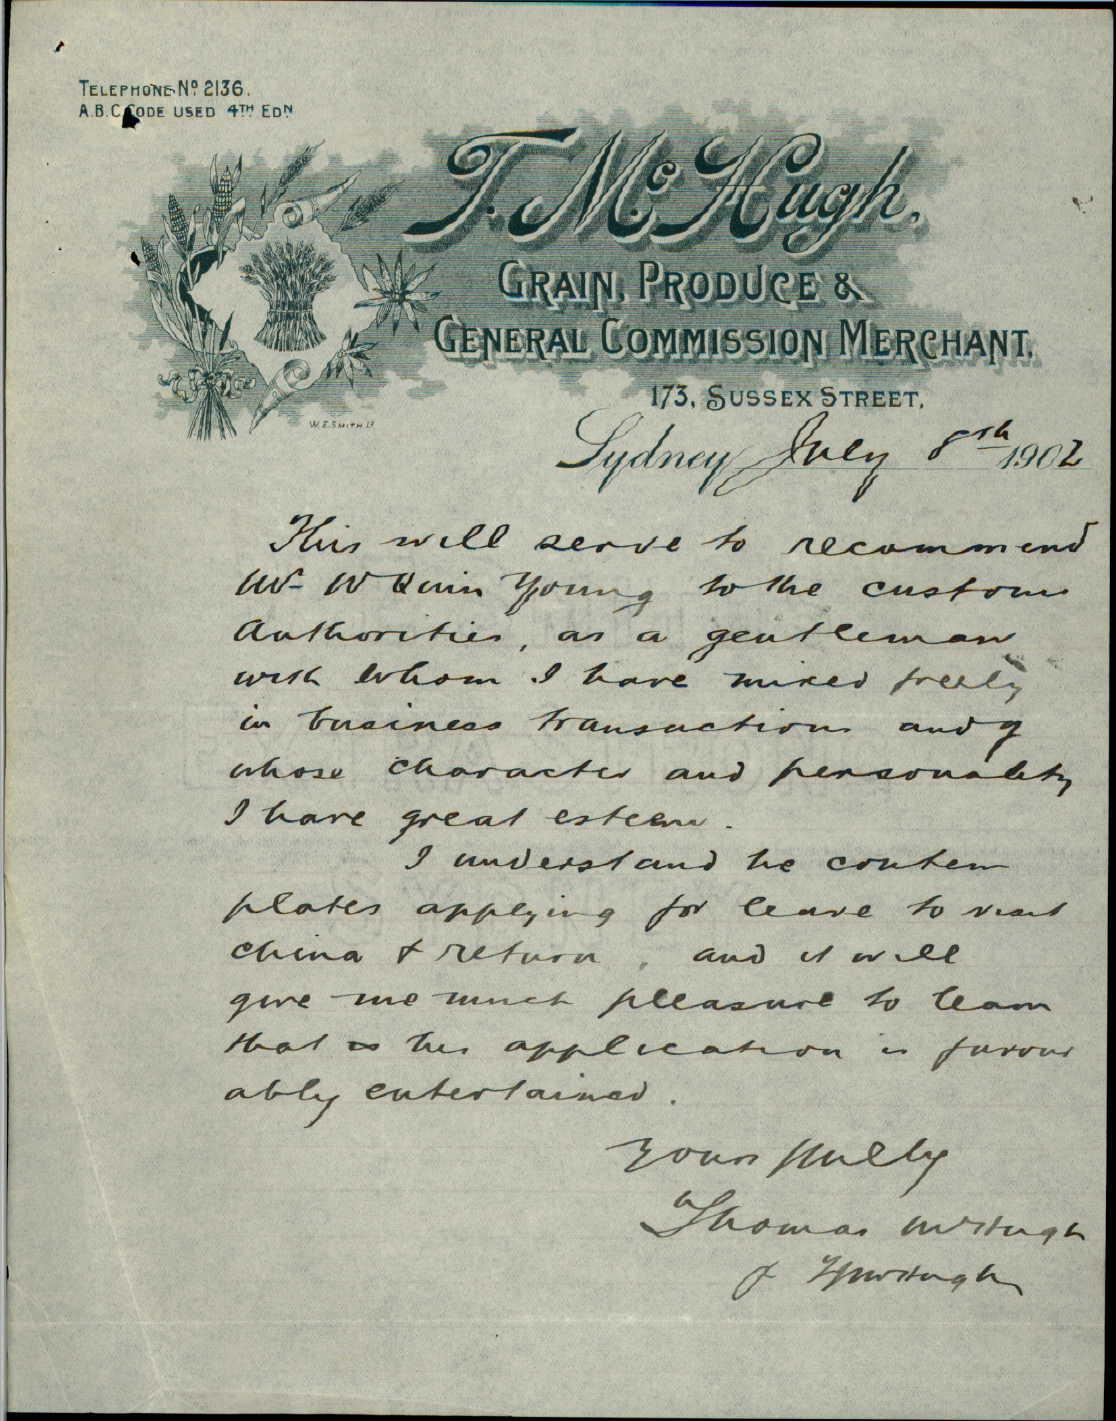 TELEPHONE No. 2136.
A.B.C. CODE USED 4TH EDN
T. Mc Hugh.
GRAIN, PRODUCE &
GENERAL COMMISSION MERCHANT.
173, SUSSEX STREET,
W.E. SMITH Ld
Sydney July 8th 1902
This will serve to recommend
Mr W Quin Young to the customs
Authorities, as a gentleman
with whom I have mixed freely
in business transactions and of
whose character and personality
I have great esteem.
I understand he contem
plates applying for leave to visit
China & return, and it will
give me much pleasure to learn
that his application is favour
ably entertained.
Yours fully
Thomas McHugh
of T McHugh